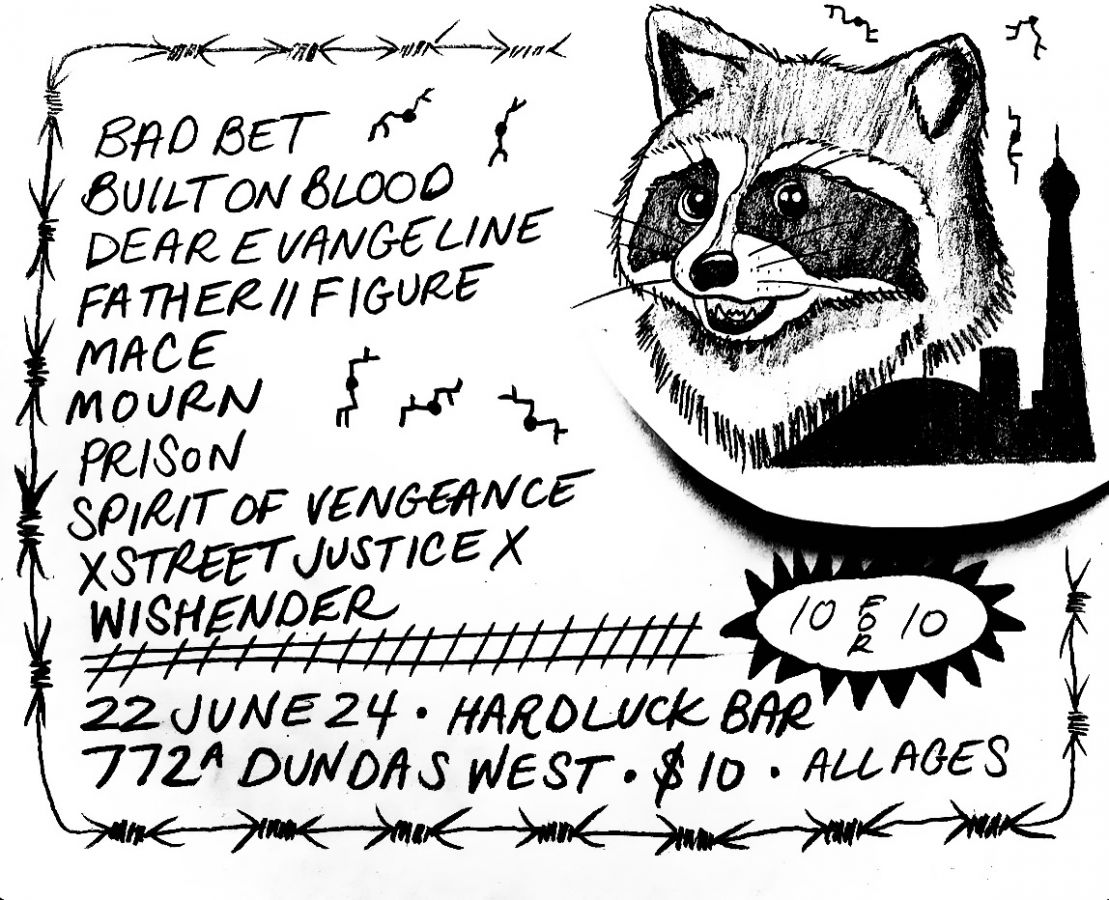 BAD BET
BUILT ON BLOOD
DEAR EVANGELINE
FATHER//FIGURE
MACE
MOURN
PRISON
SPIRIT OF VENGEANCE
XSTREET JUSTICEX
WISHENDER
10 FOR 10
22 JUNE 24 · HARDLUCK BAR
772A DUNDAS WEST · $10 · ALL AGES